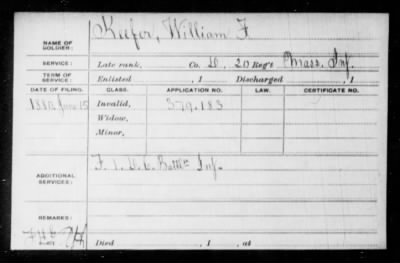 NAME OF SOLDIER: Keefer, William F
SERVICE: Late rank, Co. D, 20 Reg't Mass. Inf.
TERM OF SERVICE: Enlisted , 1 Discharged , 1
DATE OF FILING. CLASS. APPLICATION NO. LAW. CERTIFICATE NO.
1880 June 15 Invalid, 379.183
Widow,
Minor,
ADDITIONAL SERVICES: Inf.
REMARKS:
Died , 1 , at